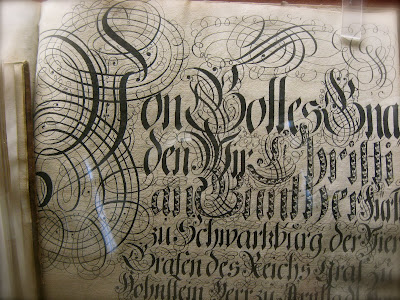 Von Gottes Gna
den Wir Christi
an Günther Fürst
zu Schwartzburg der Vier
Grafen des Reichs Graf zu
Hohnstein Herr zu